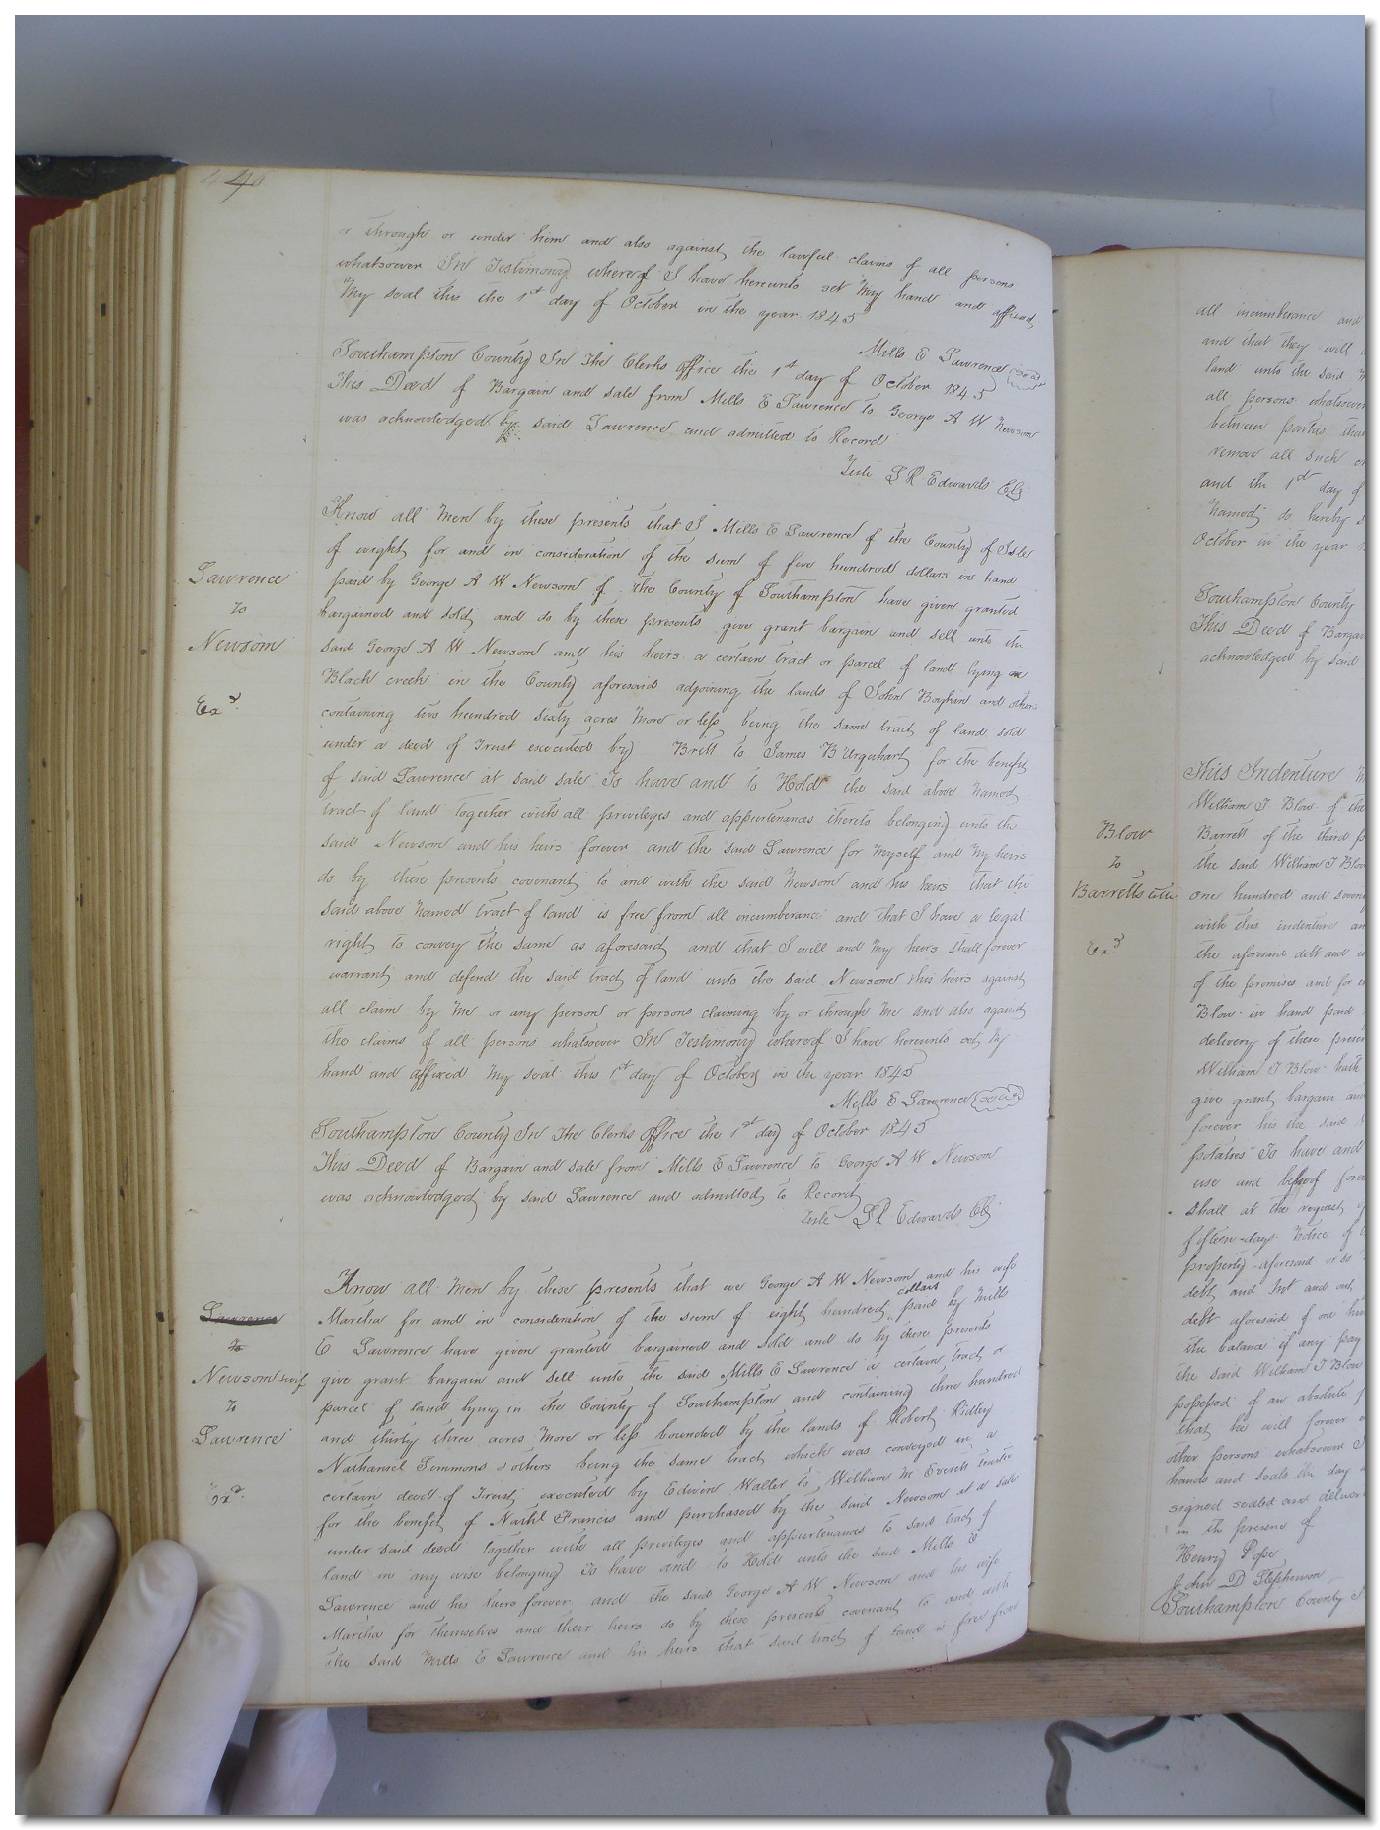 440
or through or under him and also against the lawful claims of all persons
whatsoever In Testimony whereof I have hereunto set my hand and affixed
My seal this the 1st day of October in the year 1845
Mills E Lawrence (seal)
Southampton County In The Clerks office the 1st day of October 1845
This Deed of Bargain and sale from Mills E Lawrence to George A W Newsom
was acknowledged by said Lawrence and admitted to Record
Teste L R Edwards Clk
Know all Men by these presents that I Mills E Lawrence of the County of Isle
of wight for and in consideration of the sum of five hundred dollars in hand
Lawrence
paid by George A W Newsom of the County of Southampton have given granted
to
bargained and sold, and do by these presents give grant bargain and sell unto the
Newsom
said George A W Newsom and his heirs a certain tract or parcel of land lying on
Black creek in the County aforesaid adjoining the lands of John and others
Exd
containing two hundred sixty acres More or less being the same tract of land sold
under a deed of Trust executed by Britt to James B Urquhart for the benefit
of said Lawrence at said sale To have and to Hold the said above named
tract of land together with all privileges and appurtenances thereto belonging unto the
said Newsom and his heirs forever and the said Lawrence for myself and My heirs
do by these presents covenant to and with the said Newsom and his heirs that the
said above named tract of land is free from all incumberance and that I have a legal
right to convey the same as aforesaid and that I will and My heirs shall forever
warrant and defend the said tract of land unto the said Newsom & his heirs against
all claim by Me or any person or persons claiming by or through Me and also against
the claims of all persons whatsoever In Testimony whereof I have hereunto set My
hand and affixed My seal this 1st day of October in the year 1845
Mills E Lawrence (seal)
Southampton County In The Clerks office the 1st day of October 1845
This Deed of Bargain and sale from Mills E Lawrence to George A W Newsom
was acknowledged by said Lawrence and admitted to Record
Teste L R Edwards Clk
Know all Men by these presents that we George A W Newsom and his wife
Lawrence
Martha for and in consideration of the sum of eight hundred dollars paid by Mills
to
E Lawrence have given granted bargained and sold and do by these presents
Newsom & wife
give grant bargain and sell unto the said Mills E Lawrence a certain tract or
to
parcel of land lying in the County of Southampton and containing three hundred
Lawrence
and thirty three acres More or less bounded by the lands of Robert Ridley
Nathaniel Simmons & others being the same tract which was conveyed in a
Exd
certain deed of Trust executed by Edwin Waller to William M Everitt trustee
for the benefit of Nathl Francis and purchased by the said Newsom at a sale
under said deed together with all privileges and appurtenances to said tract of
land in any wise belonging To have and to Hold unto the said Mills E
Lawrence and his heirs forever and the said George A W Newsom and his wife
Martha for themselves and their heirs do by these presents covenant to and with
the said Mills E Lawrence and his heirs that said tract of land is free from
all incumberance and
and that they will
land unto the said
all persons whatsoever
between parties
remove all such
and the 1st day of
Named do hereby
October in the year
Southampton County
This Deed of Bargain
acknowledged by said
This Indenture
William T Blow of the
Blow
Barrett of the third
to
the said William T Blow
Barretts
one hundred and
with this indenture
Exd
the aforesaid debt and
of the premises and for
Blow in hand paid
delivery of these
William T Blow hath
give grant bargain and
forever his the said
potatoes To have and
use and behoof
shall at the request
fifteen days Notice of
property aforesaid or so
debt, and Int and
debt aforesaid of one
the balance if any pay
the said William T Blow
possessed of an absolute
that he will forever
other persons whatsoever
hands and seals the day
signed sealed and
in the presence of
Henry Pope
John D Stephenson
Southampton County